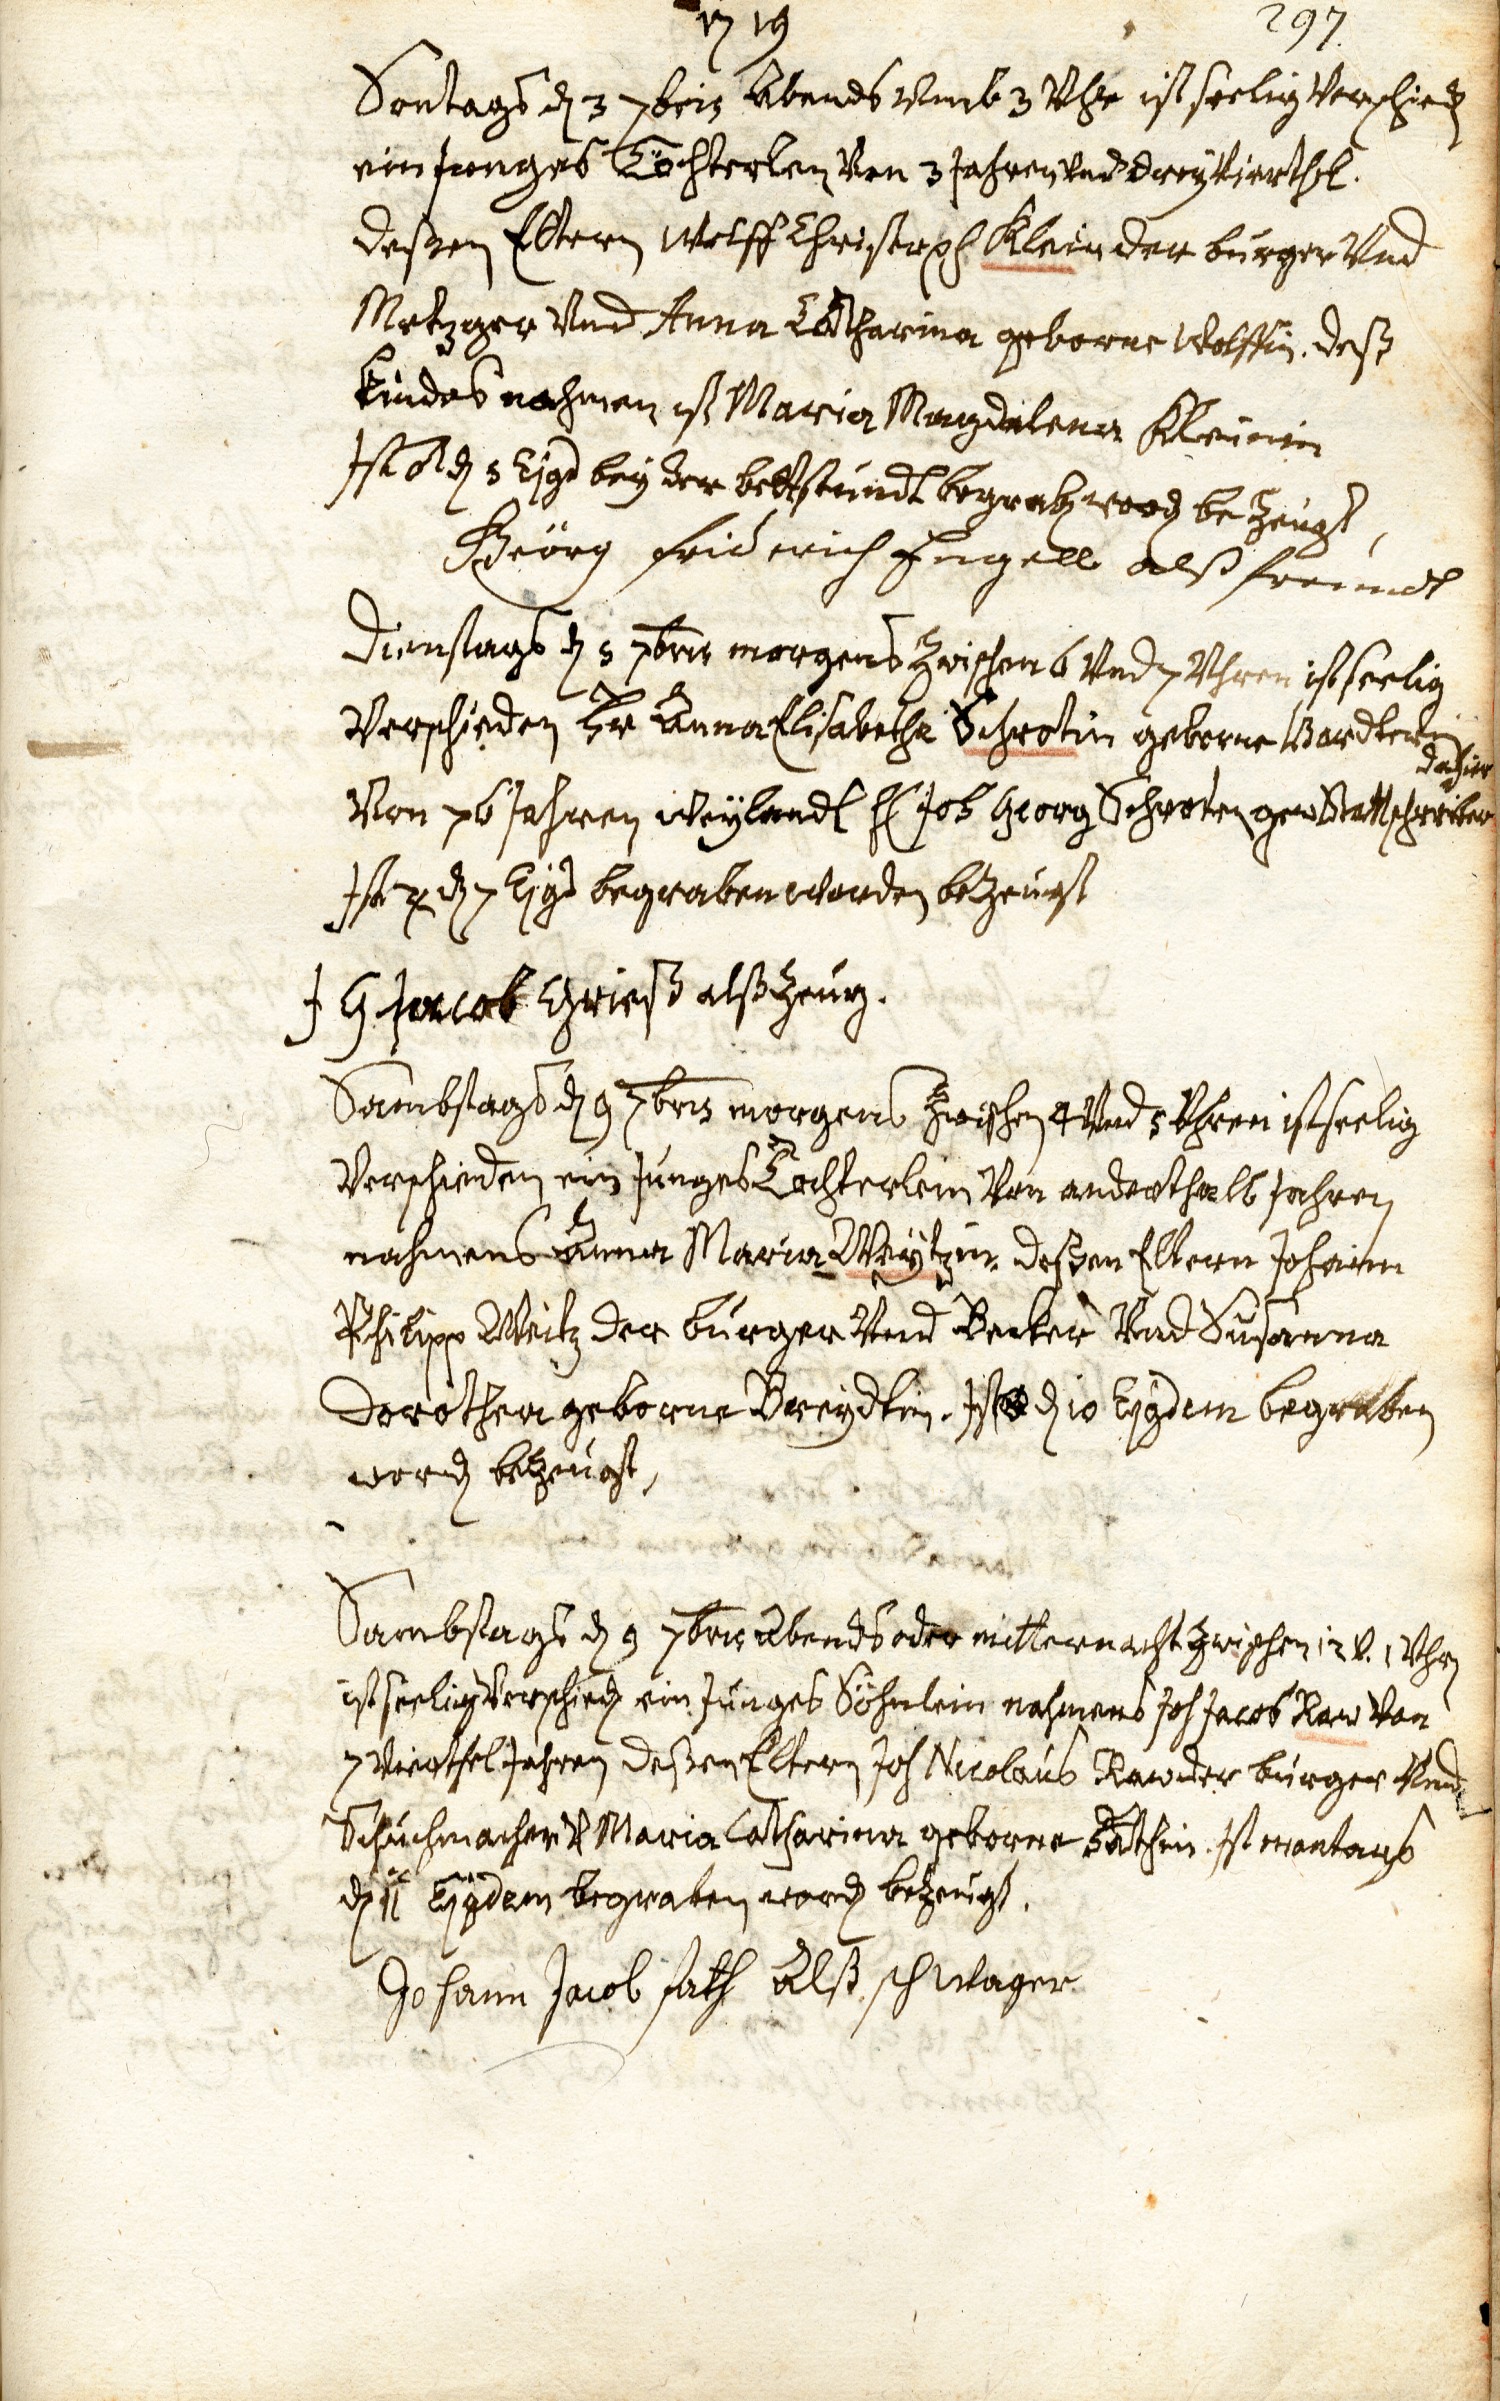 1719 297.
Sontags d 3 7bris Abends vmb 3 Vhr ist seelig Verschied
ein junges Töchterlen Von 3 Jahren vnd drey Vierthl.
deßen Eltern Wolff Christoph Klein der burger Vnd
Metzger Vnd Anna Catharina geborne Wolffin. deß
Kindes nahmen ist Maria Magdalena Kleinin
Ist ♂ d 5 Ejgd bey der bettstundt begrab word bezeugt,
Geörg friderich Engell alß freundt
Dienstags d 5 7bris morgens Zwischen 6 Vnd 7 Vhren ist seelig
Verschieden Fr Anna Elisabetha Schrotin geborne
dahier
Von 76 Jahren weylandt H Joh Georg Schroten gew Stattschreiber
Ist ♃ d 7 Ejgd begraben worden bezeugt
J G Jacob Grieß alß Zeug.
Sambstags d 9 7bris morgens Zwischen 4 Vnd 5 Vhren ist seelig
Verschieden ein Junges Töchterlein Von anderthalb Jahren
nahmens Anna Maria Weytzin. deßen Eltern Johann
Philipp Weitz der burger Vnd Becker Vnd Susanna
Dorothea geborne Breydtin. Ist d 10 Ejgdem begraben
word bezeugt,
Sambstags d 9 7bris Abends oder mitternacht Zwischen 12 V. 1 Vhr
ist seelig Verschied ein Junges Söhnlein nahmens Joh Jacob Raw Von
7 Vierthel Jahren deßen Eltern Joh Nicolaus Raw der burger Vnd
Schuchmacher V Maria Catharina geborne fathin. Ist montags
d 11 Ejgdem begraben word bezeugt.
Johann Jacob fath Alß schwager